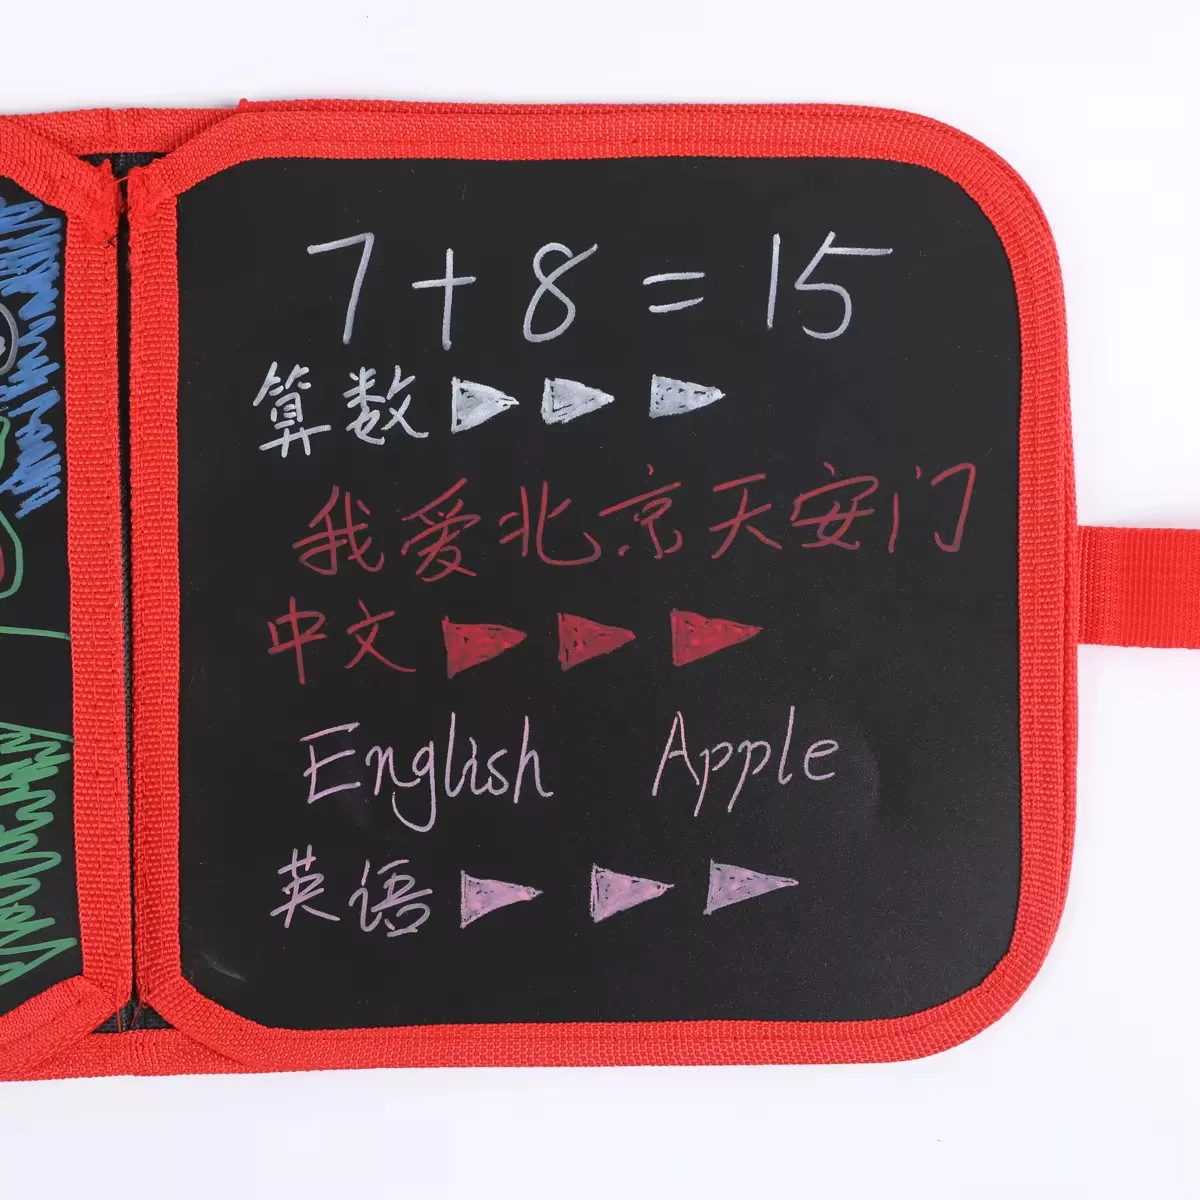 7+8=15
算数
我爱北京天安门
中文
English Apple
英语